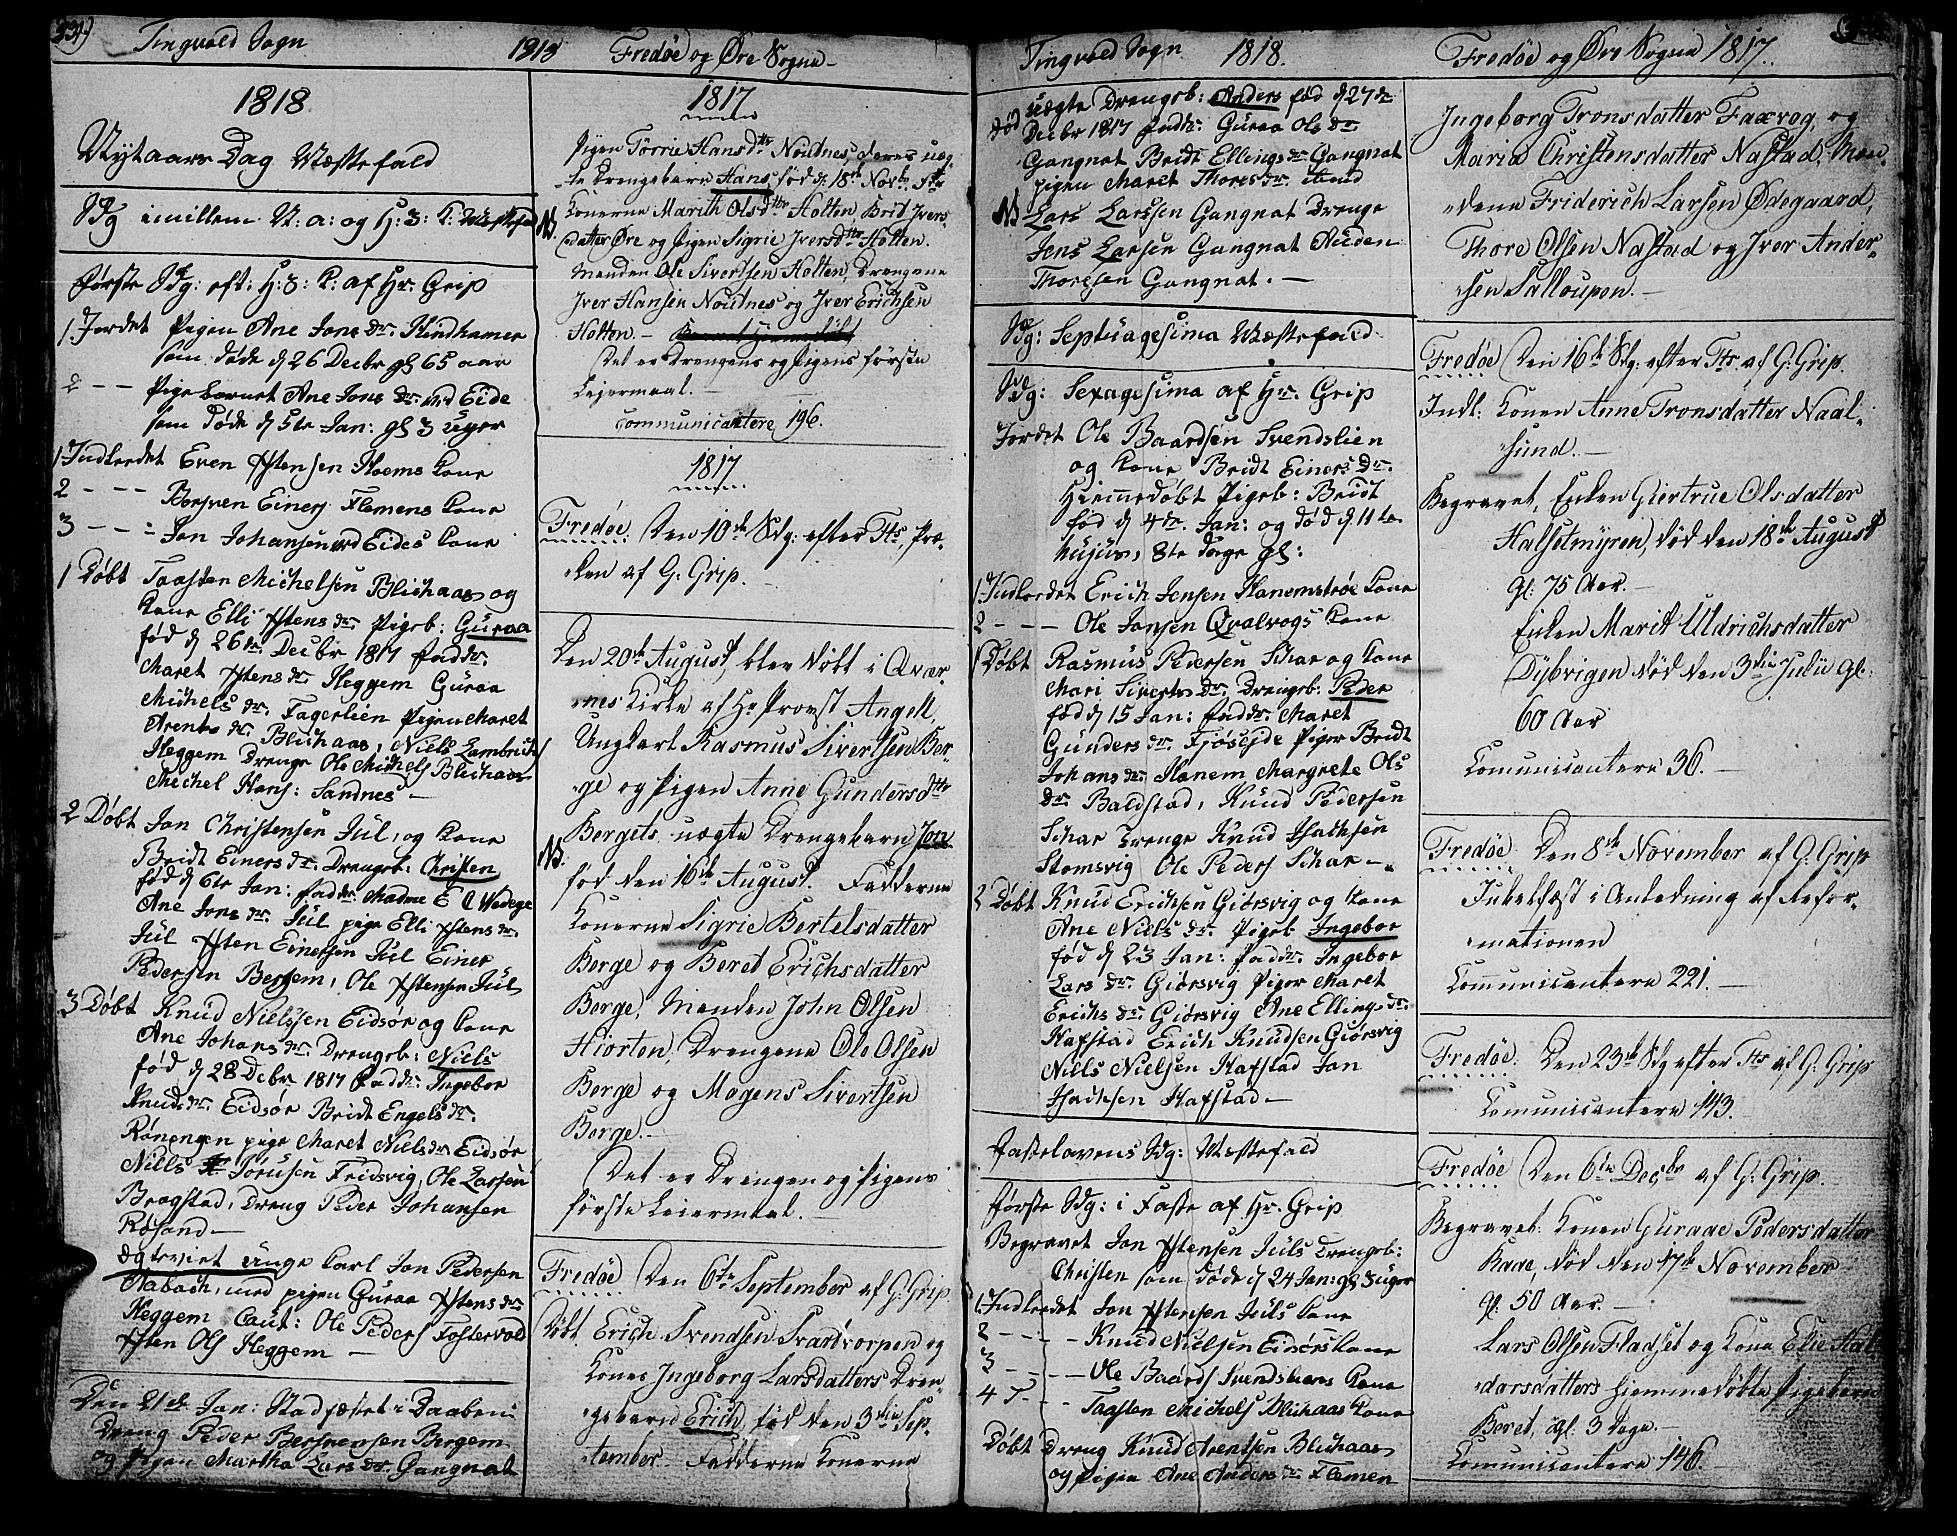 Tingvold Sogn 1818 Fredøe og Øre Sogne
1818
Nytaars Dag Mæssefald
Sdg imillem N: a: og H: 3: K:
Første Sdg: eft: H: 3: K: af Hr. Grip
1. Jordet Pigen Ane Jons Dr. Kindhamer
som døde d 26 Decbr gl 65 aar
2 - - Pige barnet Ane Jons Dr. ved Eide
som døde d 5te Jan: gl 3 uger
1. Indledet Even Istensen Hoems Kone
2 - - - Einers Flemens Kone
3 - - - Jon Johansen ved Eides Kone
1 Døbt Taasten Michelsen Blichaas og
Kone Elli Istens Dr. Pigeb: Guraa
fød d 26de Decbr 1817 fadd:
Maret Istens Dr. Heggem Guraa
Michels Dr. Fagerlien Pigen Maret
Arents Dr. Blichaas, Niels Lambrich
Heggem Drenge Ole Michels Blichaas
Michel Hans: Sandnes -
2 Døbt Jon Christensen Jul, og Kone
Bridt Einers Dr. Drengeb: Christen
fød d 6te Jan: fadd: Madme E C Wedege
Ane Jons Dr. Jul pige Elli Istens Dr.
Jul Isten Einersen Jul Einer
Pedersen Bergem, Ole Istensen Jul
3 Døbt Knud Nielssen Eidsør og Kone
Ane Johans Dr. Drengeb: Niels
fød d 28 Debr 1817 fadd: Ingebor
Knuds Dr. Eidsør Bridt Engels Dr.
Rønengen pige Maret Niels Dr Eidsør
Niels Torusen Fridsvig, Ole Larsen
Bragstad, Dreng Peder Johansen
Røsand -
Ogtrviet unge Carl Jon Pedersen
Aabach, med pigen Guraa Istens Dr
Heggem Caut: Ole Peders Fostervold
Isten Ols Heggem -
Den 21de Jan: Stadfæstet i Baaben:
Dreng Peder Bergem
og Pigen Martha Lars Dr. Gangnat
1817
Pigen Torrie Hansdtr Noutnes, deres uæg-
te Drengebarn Hans, fød d. 18de Novb. Ftr
NB. Konerne Marith Olsdtr Holten, Brit Ivers-
datter Øre og Pigen Sigrie Iversdtr Holten.
Manden Ole Sivertsen Holten, Drengene
Iver Hansen Noutnes og Iver Erichsen
Holten. -
Det er Drengens og Pigens første
Leiermaal.
Communicantere 196.
1817
Fredøe Den 10de Sdg: efter Trs, Præ-
ken af G. Grip.
Den 20de August, blev døbt i Qvær-
nes Kirke af Hr Provst Angell,
Ungkarl Rasmus Sivertsen Ber-
ge og Pigen Anne Gundersdtr
Bergets uægte Drengebarn Jon
NB. fød den 16de August. Fadderne
Konerne Sigrie Bertelsdatter
Berge og Beret Erichsdatter
Berge, Manden John Olsen
Hiorten, Drengene Ole Olsen
Berge og Mogens Sivertsen
Berge. -
Det er Drengen og Pigens
første Leiermaal. -
Fredøe Den 6te September af G. Grip
Døbt Erich Svendsen Svartvorpen og
Kones Ingeborg Larsdatters Dren-
gebarn Erich, fød den 3die Sep-
tember. Fadderne Konerne
Tingvold Sogn 1818. Fredøe og Øre Sogne 1817.
uægte Drengeb: Anders fød d 27de
Decbr 1817 fadd: Guraa Ols Dr
Gangnat Bridt Ellings Dr Gangnat
Pigen Maret Thores Dr.
NB Lars Larssen Gangnat Drenge
Jens Larsen Gangnat Auden
Thoresen Gangnat. -
Sdg: Septuagesima Mæssefald
Sdg: Sexagesima af Hr. Grip
Jordet Ole Baardsen Svendslien
og Kone Bridt Einers Dr.
Hiemedøbt Pigeb: Bridt
fød d 4de Jan: og død d 11te
hujus, 8te dage gl:
1. Indledet Erich Jensen Hanemstrøe Kone
2 - - - Ole Jonsen Qvalvogs Kone
1 Døbt Rasmus Pedersen Schar og Kone
Mari Siverts Dr. Drengeb: Peder
fød d 15 Jan: fadd: Maret
Gunders Dr. Fjøsejde Piger Bridt
Johans Dr. Hanem Margrete Ols
Dr. Baldstad, Knud Pedersen
Schar Drenge Knud Isachsen
Stomsvig Ole Peders Schar -
2 Døbt Knud Erichsen Giørsvig og Kone
Ane Niels Dr. Pigeb Ingebor
fød d 23 Jan: fadd: Ingebor
Lars Dr. Giørsvig Piger Maret
Erichs Dr. Giørsvig Ane Ellings Dr.
Hafstad Erich Knudsen Giørsvig
Niels Nielsen Hafstad Jan
Isachsen Hafstad -
Fastelavens Sdg: Mæssefald
Første Sdg: i Faste af Hr. Grip
Begravet Jon Istensen Juls Drengeb:
Christen som døde d 24 Jan: gl 3 uger
1. Indledet Jon Istensen Juls Kone
2 - - - Knud Nielsen Eidsørs Kone
3 - - - Ole Baards Svendsliens Kone
4 - - Taasten Michels Blichaas Kone
Døbt Dreng Knud Arentsen Blichaas
og Pigen Ane Anders Dr. Flemen
Ingeborg Tronsdatter Faxvog, og
Maria Christensdatter Nastad, Mæn-
dene Friderich Larsen Ødegaard,
Thore Olsen Nastad og Iver Ander-
sen Salloupen. -
Fredøe Den 16de Sdg: efter Trs af G. Grip.
Indl: Konen Anne Tronsdatter Naal-
sund. -
Begravet, Enken Giertrue Olsdatter
Halsetmyren, død den 18de August
gl: 75 Aar. -
Enken Marit Uldrichsdatter
Dybvigen død den 3die Julii gl:
60 Aar
Communicantere 36. -
Fredøe. Den 8de November af G. Grip
Jubelfæst i Anledning af Refor-
mationen
Communicantere 221. -
Fredøe. Den 23de Sdg efter Trs af G. Grip
Communicantere 143.
Fredøe Den 6te Decbr af G. Grip.
Begravet: Konen Guraae Pedersdatter
død den 17de November
gl: 50 Aar. -
Lars Olsen Fladset og Kone Elie Hal-
dorsdatters hjemmedøbte Pigebarn
Beret, gl. 3 Dage. -
Communicantere 146.